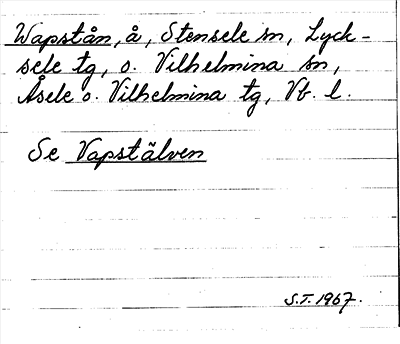 Wapstån, å, Stensele sn, Lyck-
sele tg, o. Vilhelmina sn,
Åsele o. Vilhelmina tg, Vb. l.
Se Vapstälven
S.T. 1967.